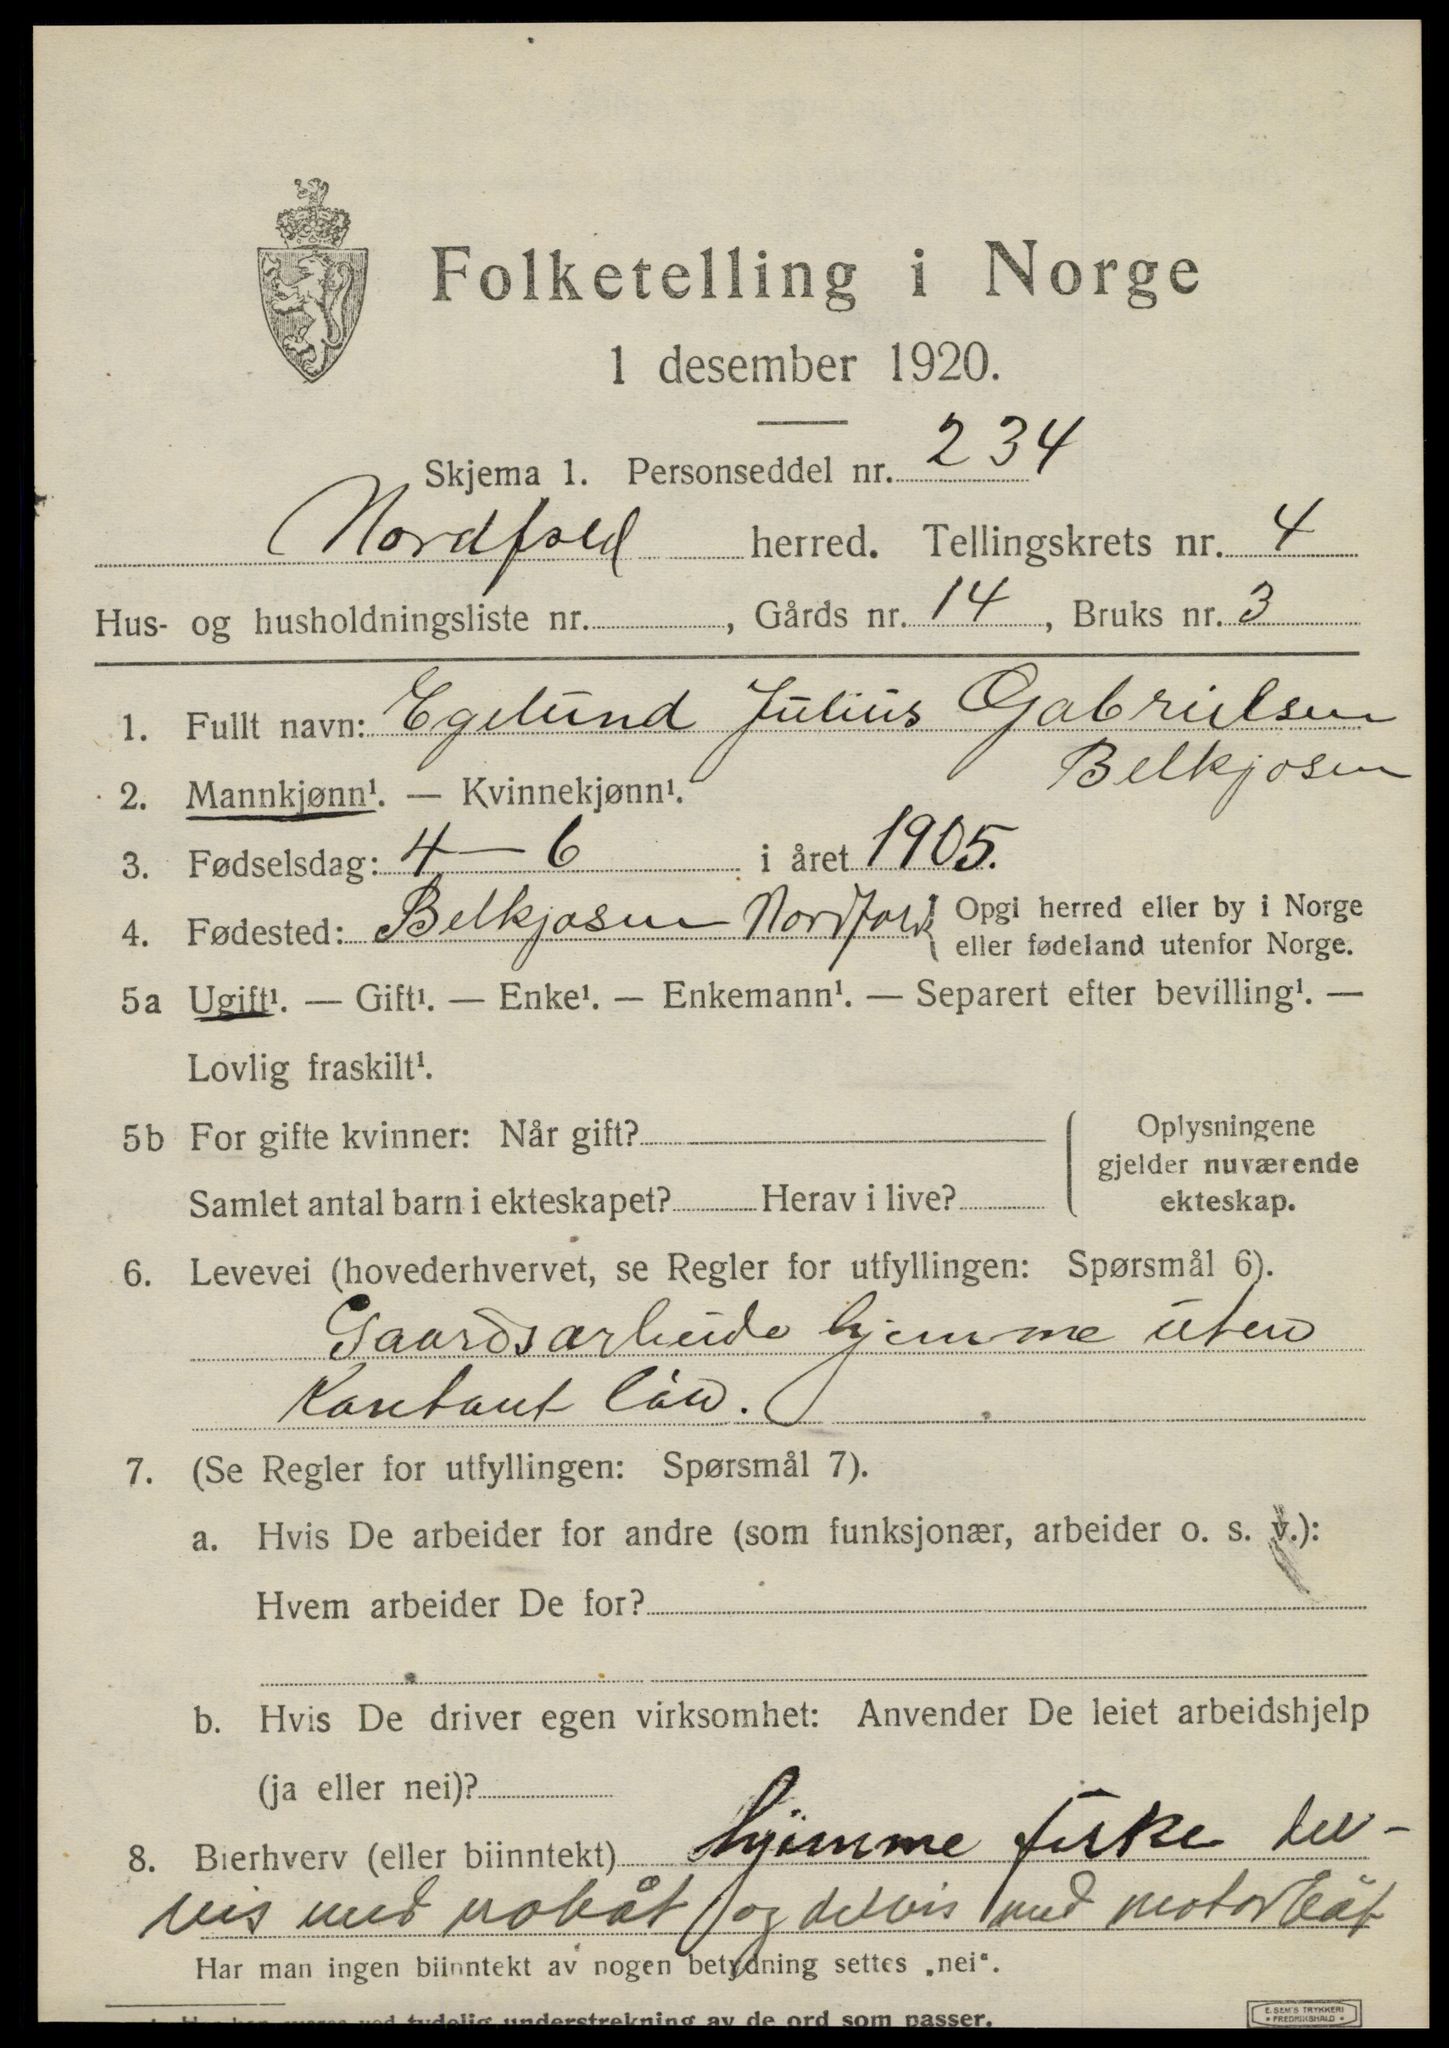 Folketelling i Norge
1 desember 1920.
Skjema 1. Personseddel nr. 234
Nordfold herred. Tellingskrets nr. 4
Hus- og husholdningsliste nr. , Gårds nr. 14 , Bruks nr. 3
1. Fullt navn: Egelund Julius Gabrielsen
Belkjosen
2. Mannkjønn¹. — Kvinnekjønn¹.
3. Fødselsdag: 4 — 6 i året 1905.
4. Fødested: Belkjosen Nordfold { Opgi herred eller by i Norge
eller fødeland utenfor Norge.
5a Ugift¹. — Gift¹. — Enke¹. — Enkemann¹. — Separert efter bevilling¹. —
Lovlig fraskilt¹.
5b For gifte kvinner: Når gift?
Samlet antal barn i ekteskapet? Herav i live?
Oplysningene
gjelder nuværende
ekteskap.
6. Levevei (hovederhvervet, se Regler for utfyllingen: Spørsmål 6).
Gaardsarbeide hjemme uten
Kontant lön.
7. (Se Regler for utfyllingen: Spørsmål 7).
a. Hvis De arbeider for andre (som funksjonær, arbeider o. s. v.):
Hvem arbeider De for?
b. Hvis De driver egen virksomhet: Anvender De leiet arbeidshjelp
(ja eller nei)?
8. Bierhverv (eller biinntekt) hjemme fiske del-
vis med robåt og delvis med motorbåt
Har man ingen biinntekt av nogen betydning settes „nei“.
tydelig understrekning av de ord som passer.
E. SEM'S TRYKKERI
• FREDRIKSHALD •